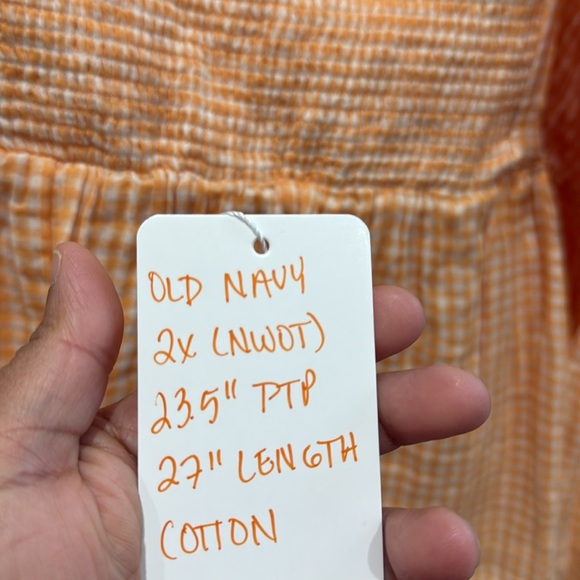 OLD NAVY
2X (NWOT)
23.5" PTP
27" LENGTH
COTTON